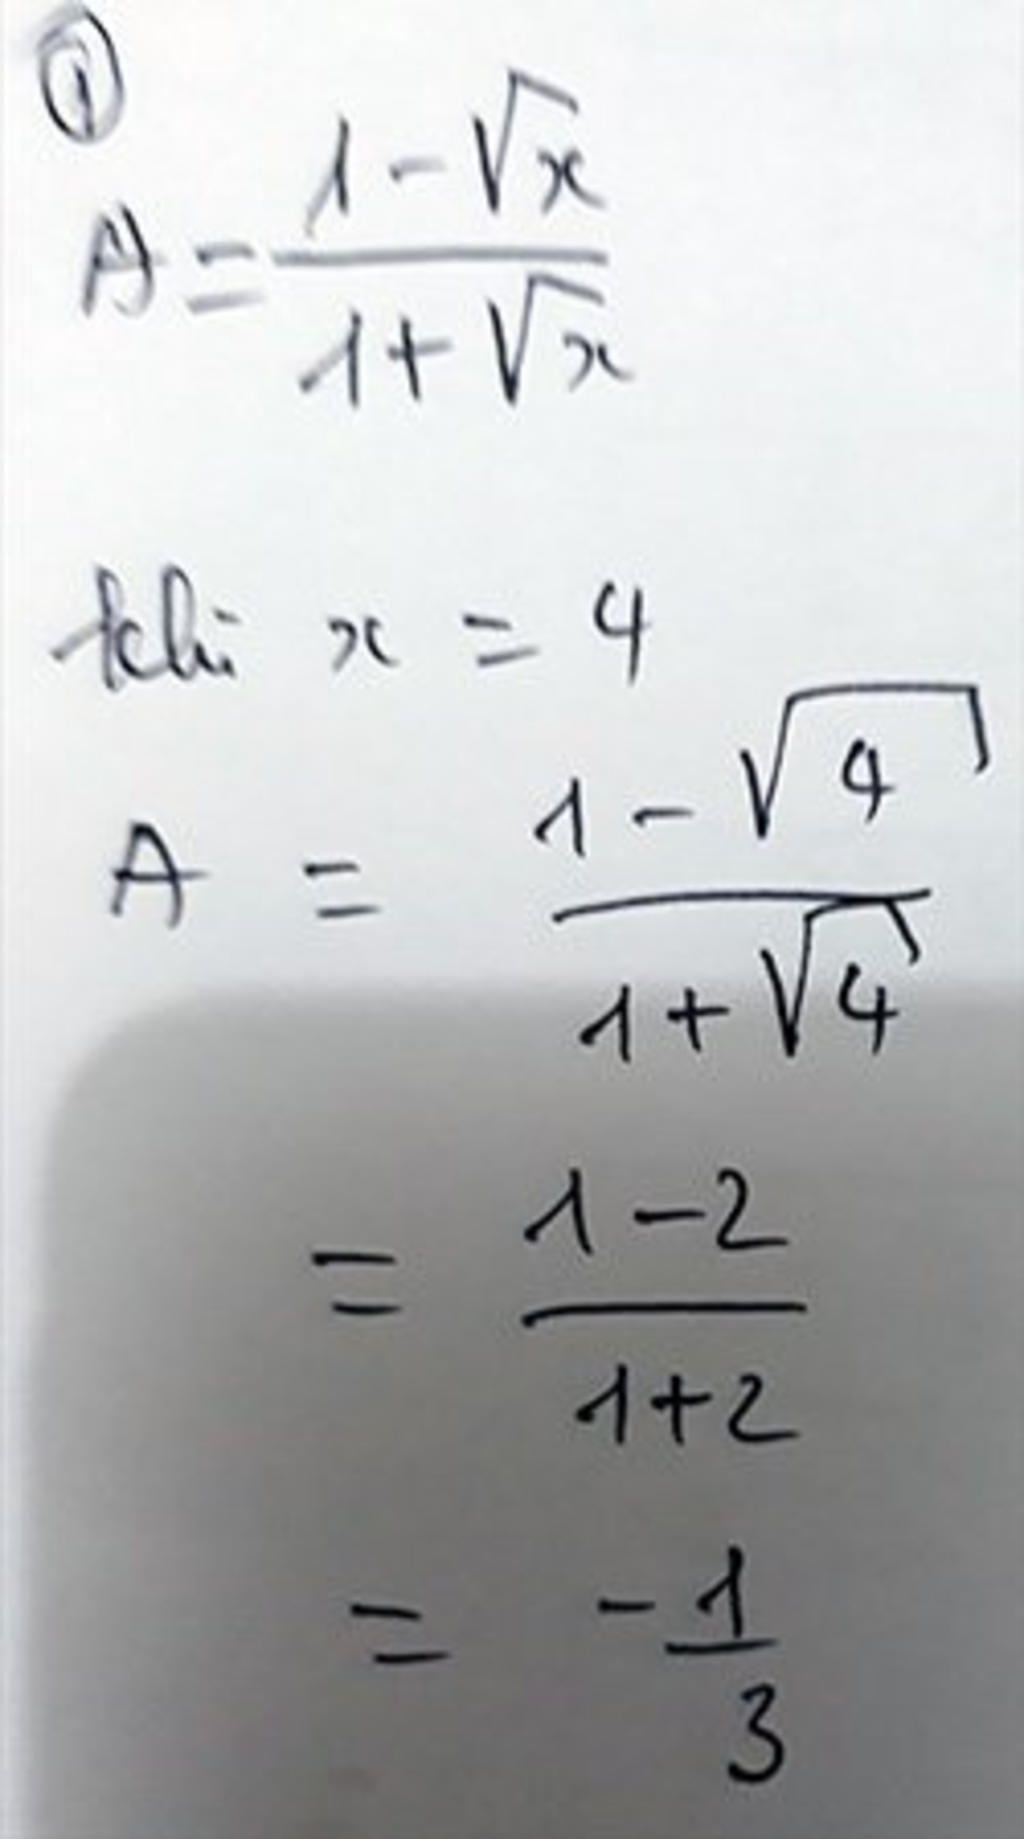 ①
A = \frac{1-\sqrt{x}}{1+\sqrt{x}}
khi x = 4
A = \frac{1-\sqrt{4}}{1+\sqrt{4}}
= \frac{1-2}{1+2}
= -\frac{1}{3}